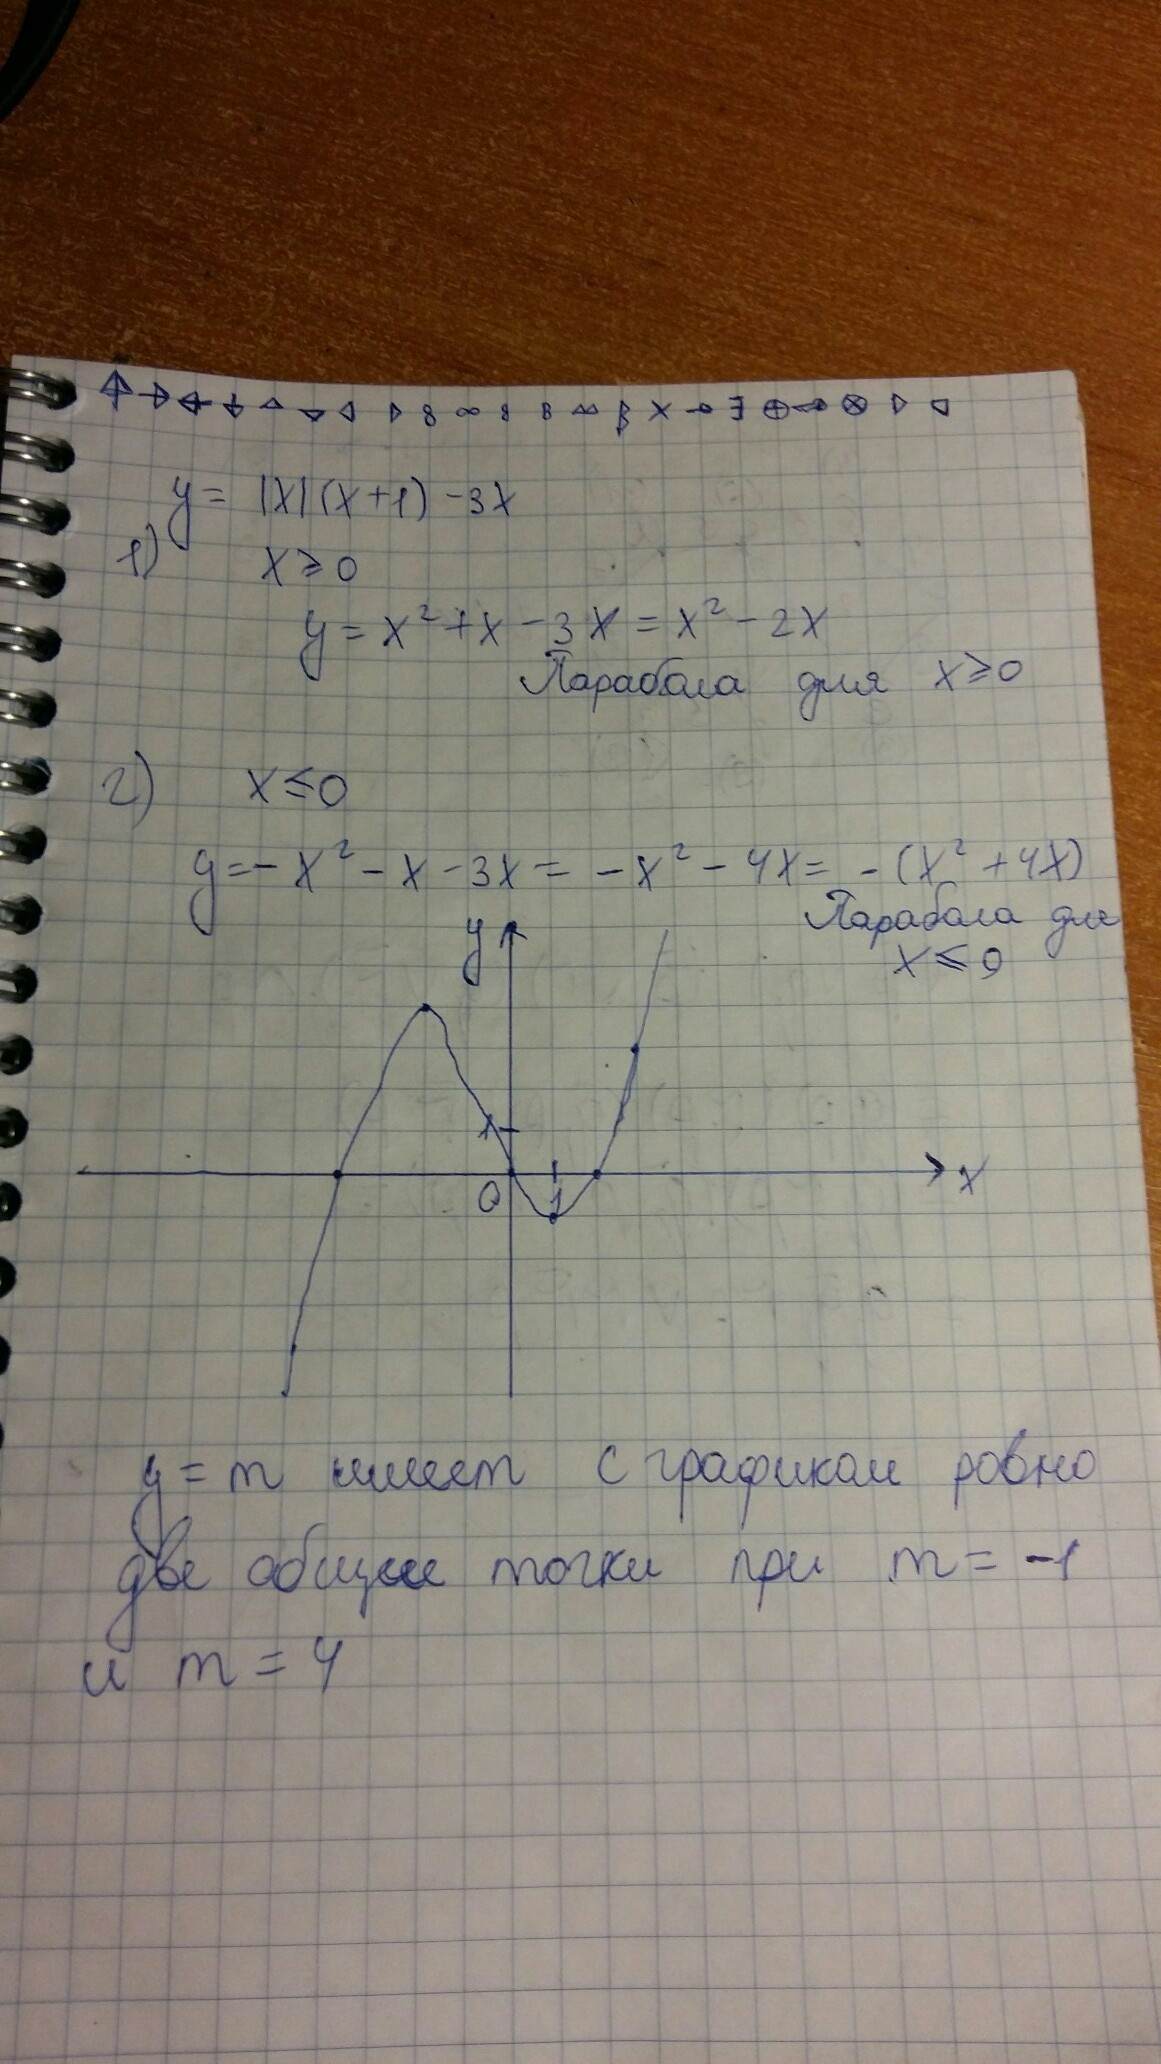 y = |x|(x+1) -3x
1) x ≥ 0
y = x² + x - 3x = x² - 2x
Парабола для x ≥ 0
2) x ≤ 0
y = - x² - x - 3x = - x² - 4x = - (x² + 4x)
Парабола для
x ≤ 0
y
1
0 1
x
y = m имеет с графиком ровно
две общие точки при m = -1
и m = 4